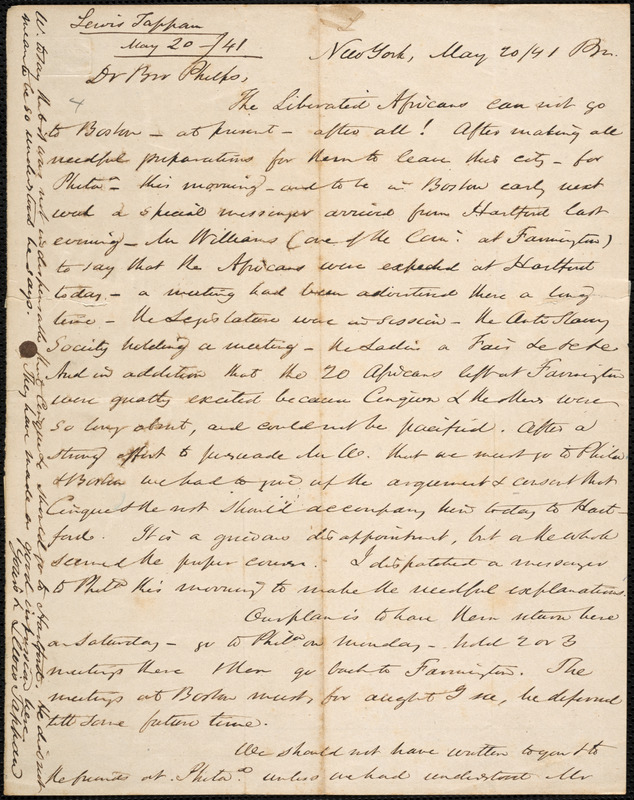 Lewis Tappan
May 20 - /41
New York, May 20/41
Dr Bror Phelps,
The Liberated Africans can not go
to Boston - at present - after all! After making all
needful preparations for them to leave this city - for
Philaa - this morning - and to be in Boston early next
week a special messenger arrived from Hartford last
evening - Mr Williams (one of the Com. at Farmington)
to say that the Africans were expected at Hartford
today - a meeting had been advertised there a long
time - the Legislature was in session - the Anti Slavery
Society holding a meeting - the Ladies a Fair &c &c &c
And in addition that the 20 Africans left at Farmington
were greatly excited because Cinque & the others were
so long absent, and could not be pacified. After a
strong effort to persuade Mr W. that we must go to Phila
& Boston we had to give up the argument & consent that
Cinque & the rest should accompany him today to Hart-
ford. It is a grievous disappointment, but on the whole
seemed the proper course. I dispatched a messenger
to Phila this morning to make the needful explanations.
Our plan is to have them return here
on Saturday - go to Phila on Monday - hold 2 or 3
meetings there & then go back to Farmington. The
meetings at Boston must, for aught I see, be deferred
till some future time.
We should not have written to you & to
the friends at Phila unless we had understood Mr
W. to say that it was not indispensable that Cinque &c should go to Hartford. He did not
mean to be so understood he says. They have made a good impression here.
Yours &c Lewis Tappan